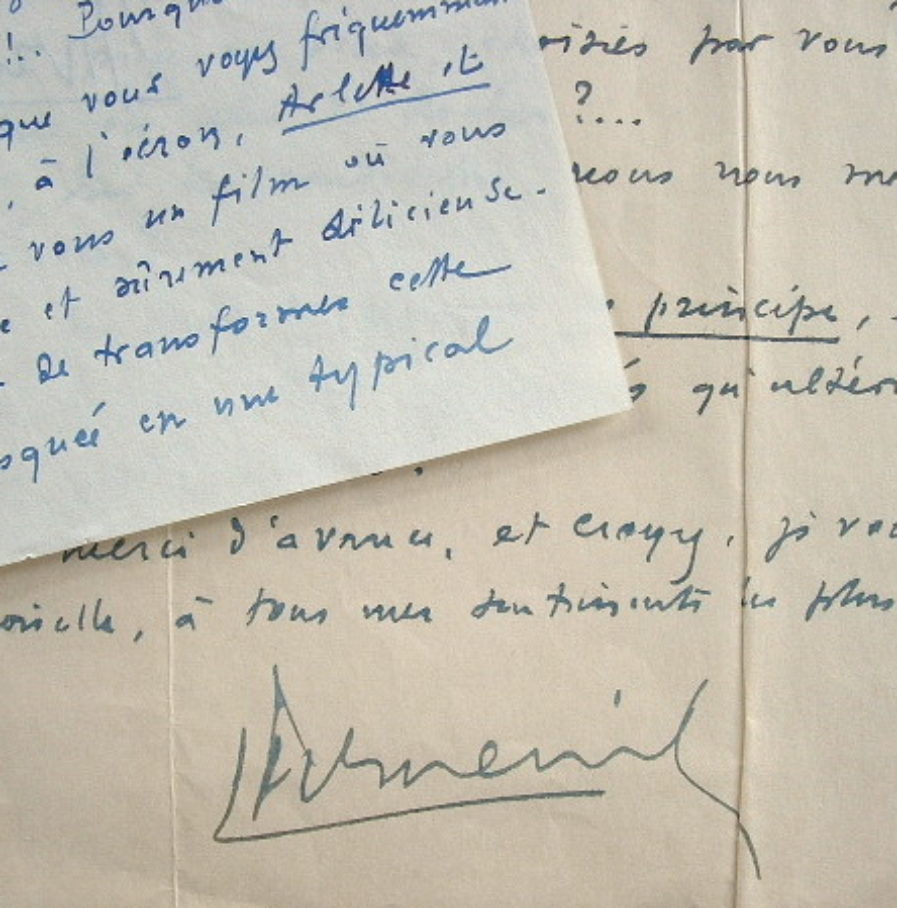 !.. Pourqu
que vous voyez fréquemment
, à l'écran, Arlette et
vous un film où vous
e et sûrement délicieuse.
de transformer cette
squée en une typical
risées par vous
?...
nous nous me
principe,
qu'ultéri
merci d'avance, et croyez, je vou
oiselle, à tous mes sentiments les plus